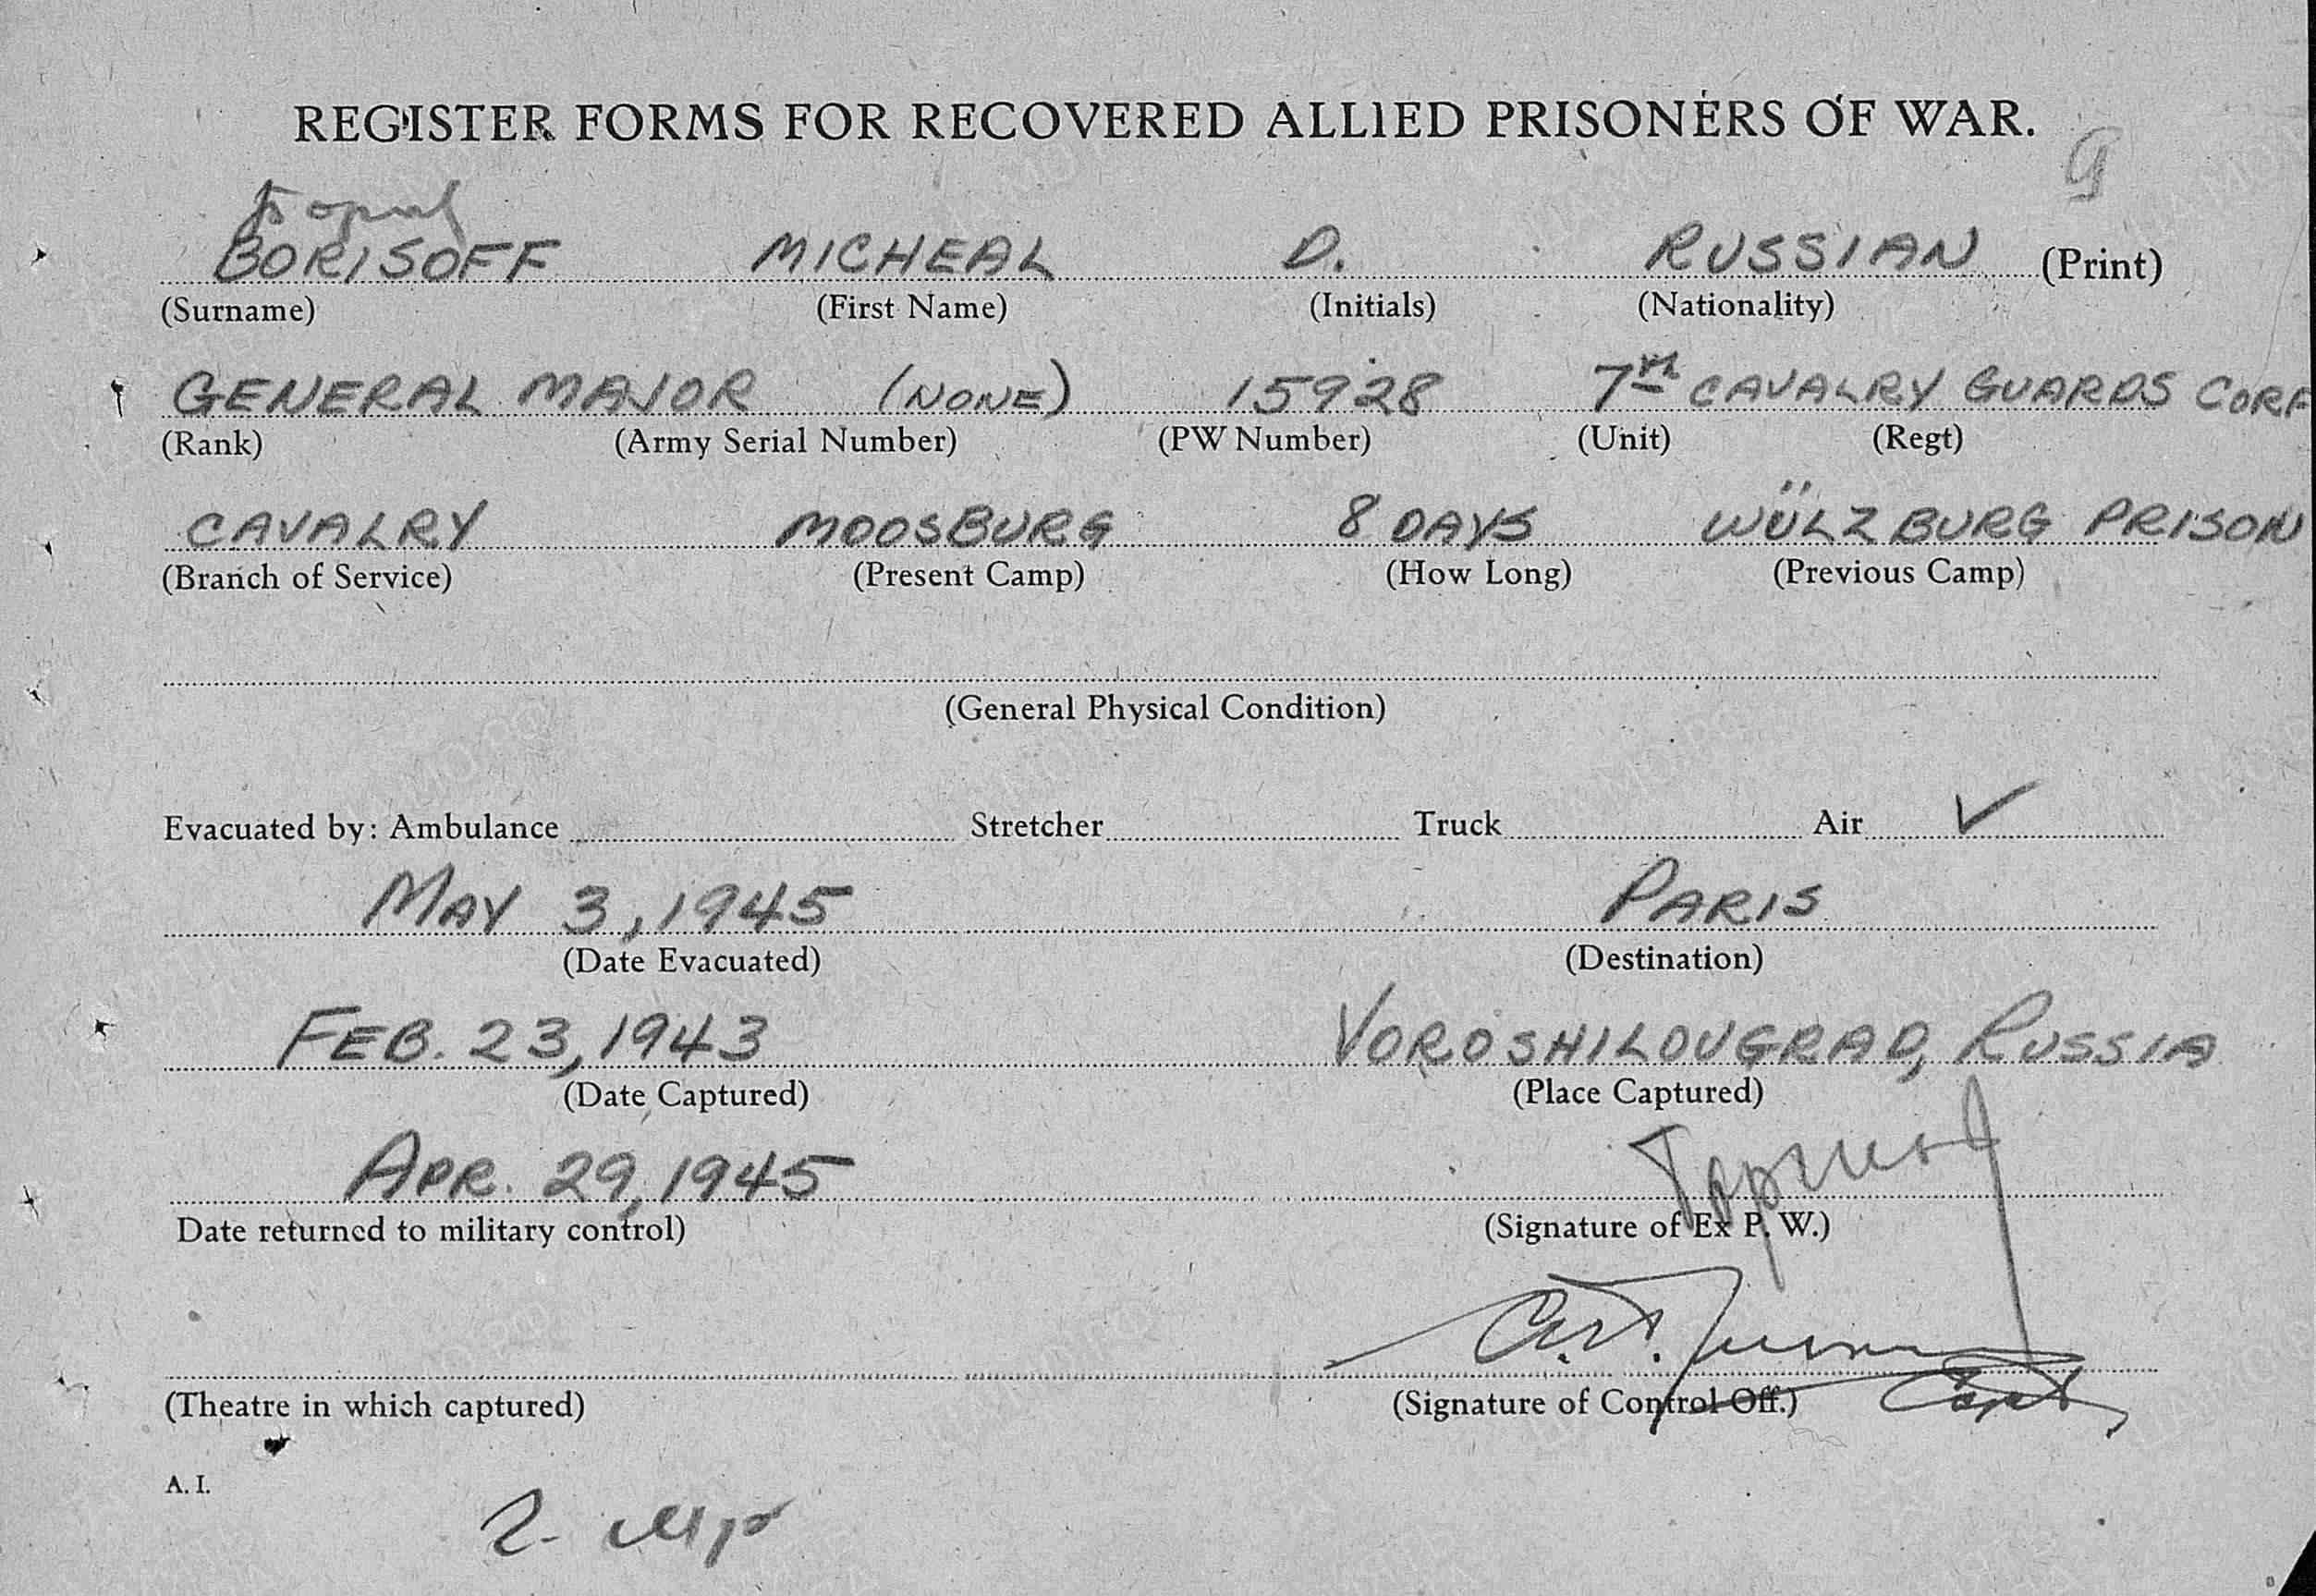 REGISTER FORMS FOR RECOVERED ALLIED PRISONERS OF WAR.
BORISOFF MICHEAL D. RUSSIAN (Print)
(Surname) (First Name) (Initials) (Nationality)
GENERAL MAJOR (NONE) 15928 7TH CAVALRY GUARDS CORP
(Rank) (Army Serial Number) (PW Number) (Unit) (Regt)
CAVALRY MOOSBURG 8 DAYS WÜLZBURG PRISON
(Branch of Service) (Present Camp) (How Long) (Previous Camp)
(General Physical Condition)
Evacuated by: Ambulance Stretcher Truck Air ✓
MAY 3, 1945 PARIS
(Date Evacuated) (Destination)
FEB. 23, 1943 VOROSHILOVGRAD, RUSSIA
(Date Captured) (Place Captured)
APR. 29, 1945
Date returned to military control) (Signature of Ex P. W.)
Capt
(Theatre in which captured) (Signature of Control Off.)
A. I.